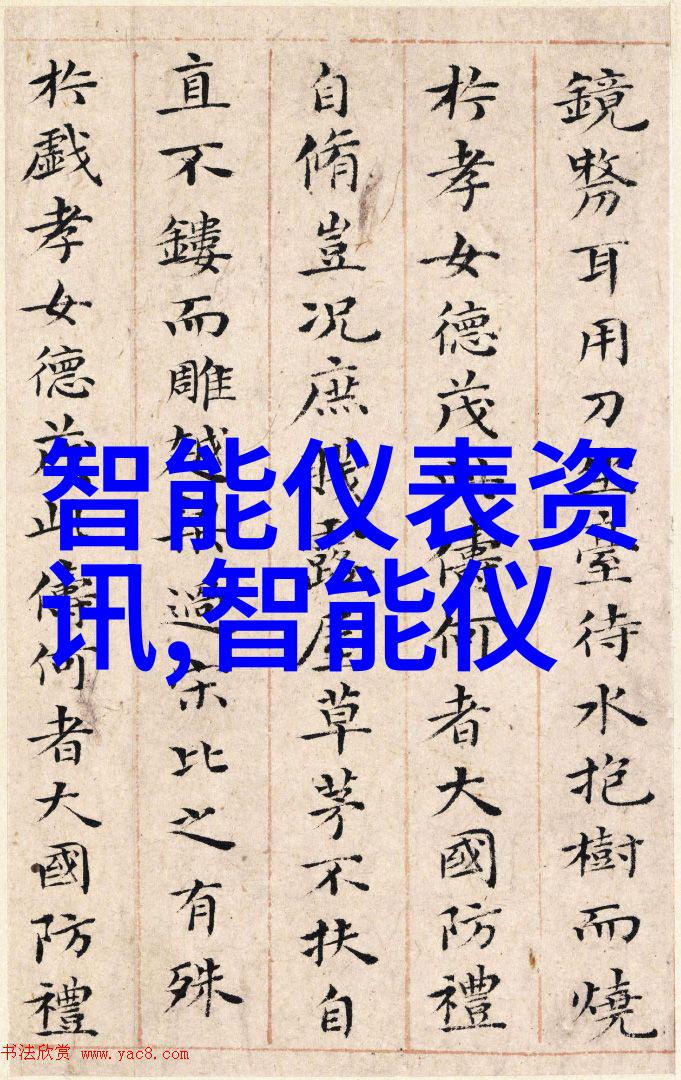 鏡剺耳用刀臺待水抱樹而燒
於孝女德茂此儔何者大國防禮
自脩豈况庶露屋草茅不扶自
直不鏤而雕越梁過宋比之有殊
於戲孝女德茂此儔何者大國防禮
智能仪表资
讯,智能仪
书法欣赏 www.yac8.com